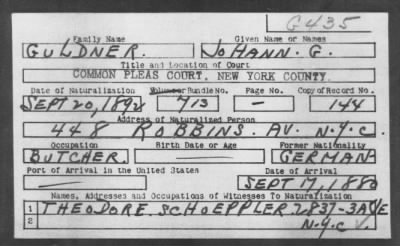 G435
Family Name Given Name or Names
GULDNER. JOHANN. G.
Title and Location of Court
COMMON PLEAS COURT, NEW YORK COUNTY.
Date of Naturalization Volume or Bundle No. Page No. Copy of Record No.
SEPT 20, 1892 713 — 144
Address of Naturalized Person
448 ROBBINS. AV. N.Y.C.
Occupation Birth Date or Age Former Nationality
BUTCHER. — GERMAN
Port of Arrival in the United States Date of Arrival
— SEPT 17, 1880
Names, Addresses and Occupations of Witnesses To Naturalization
1 THEODORE SCHOEPPLER 2P37-3AVE
2 N.Y.C.